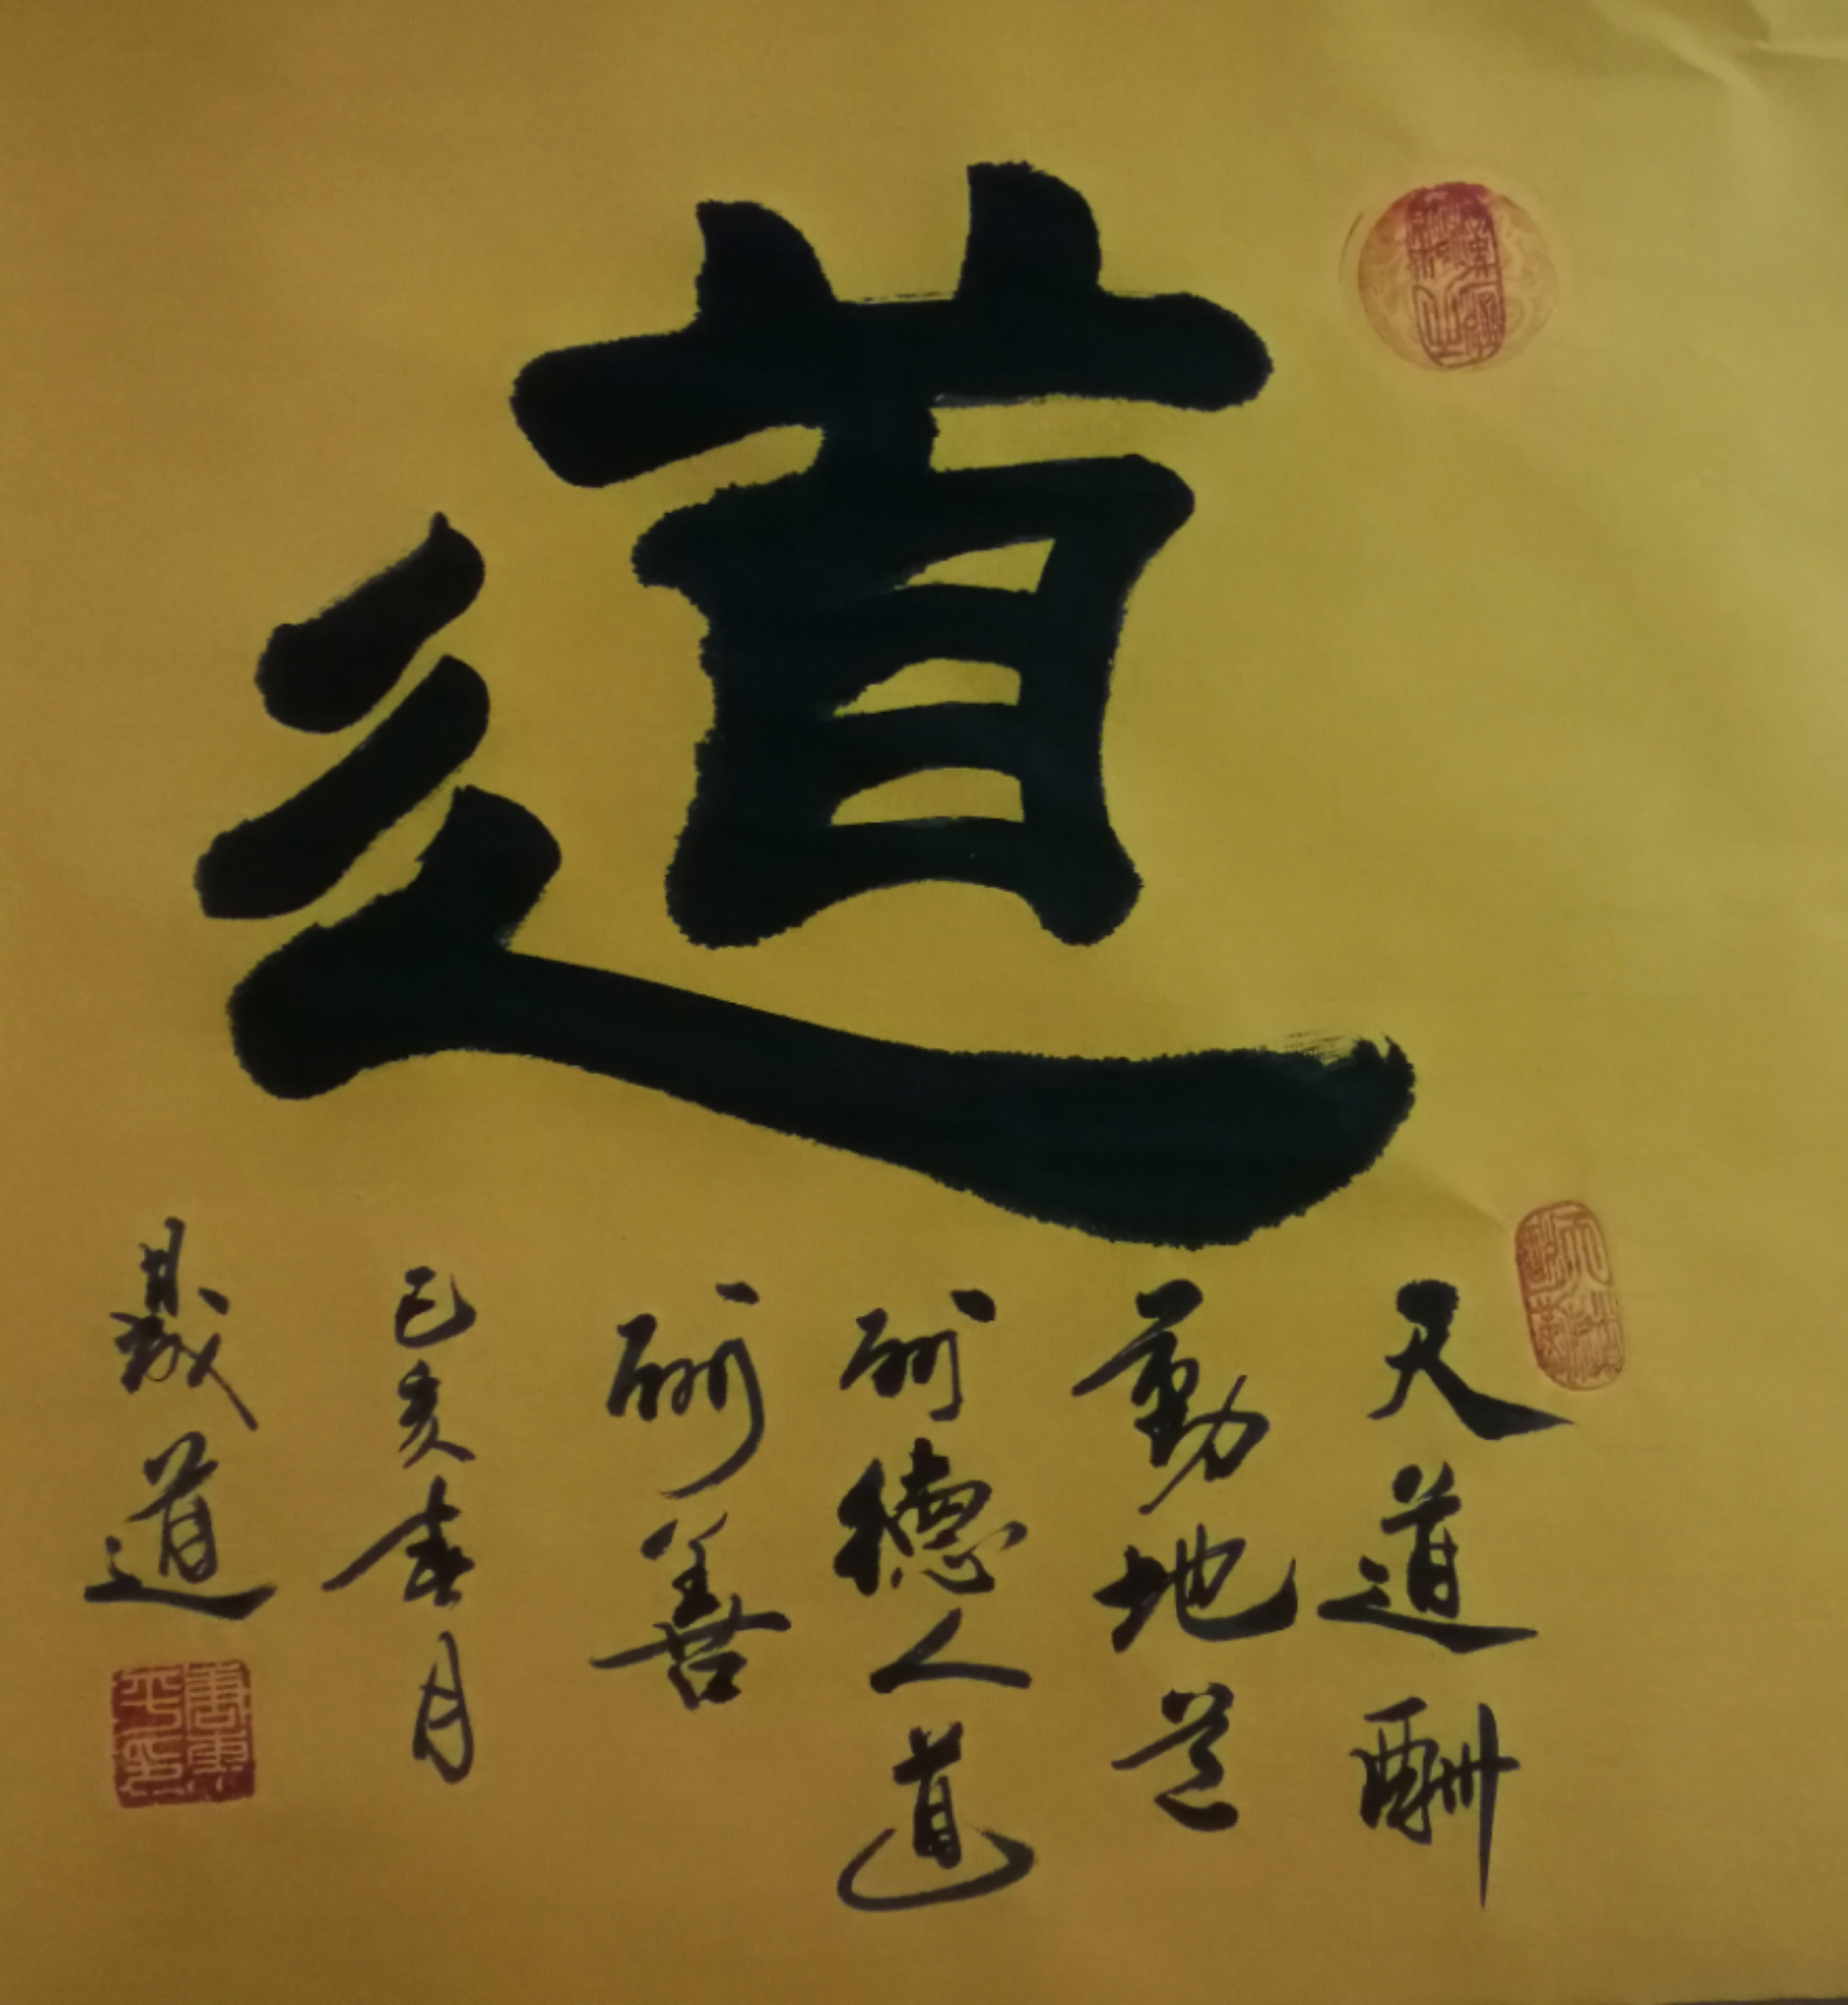 道
天道酬
勤地道
酬德人道
酬善
己亥春月
晟道